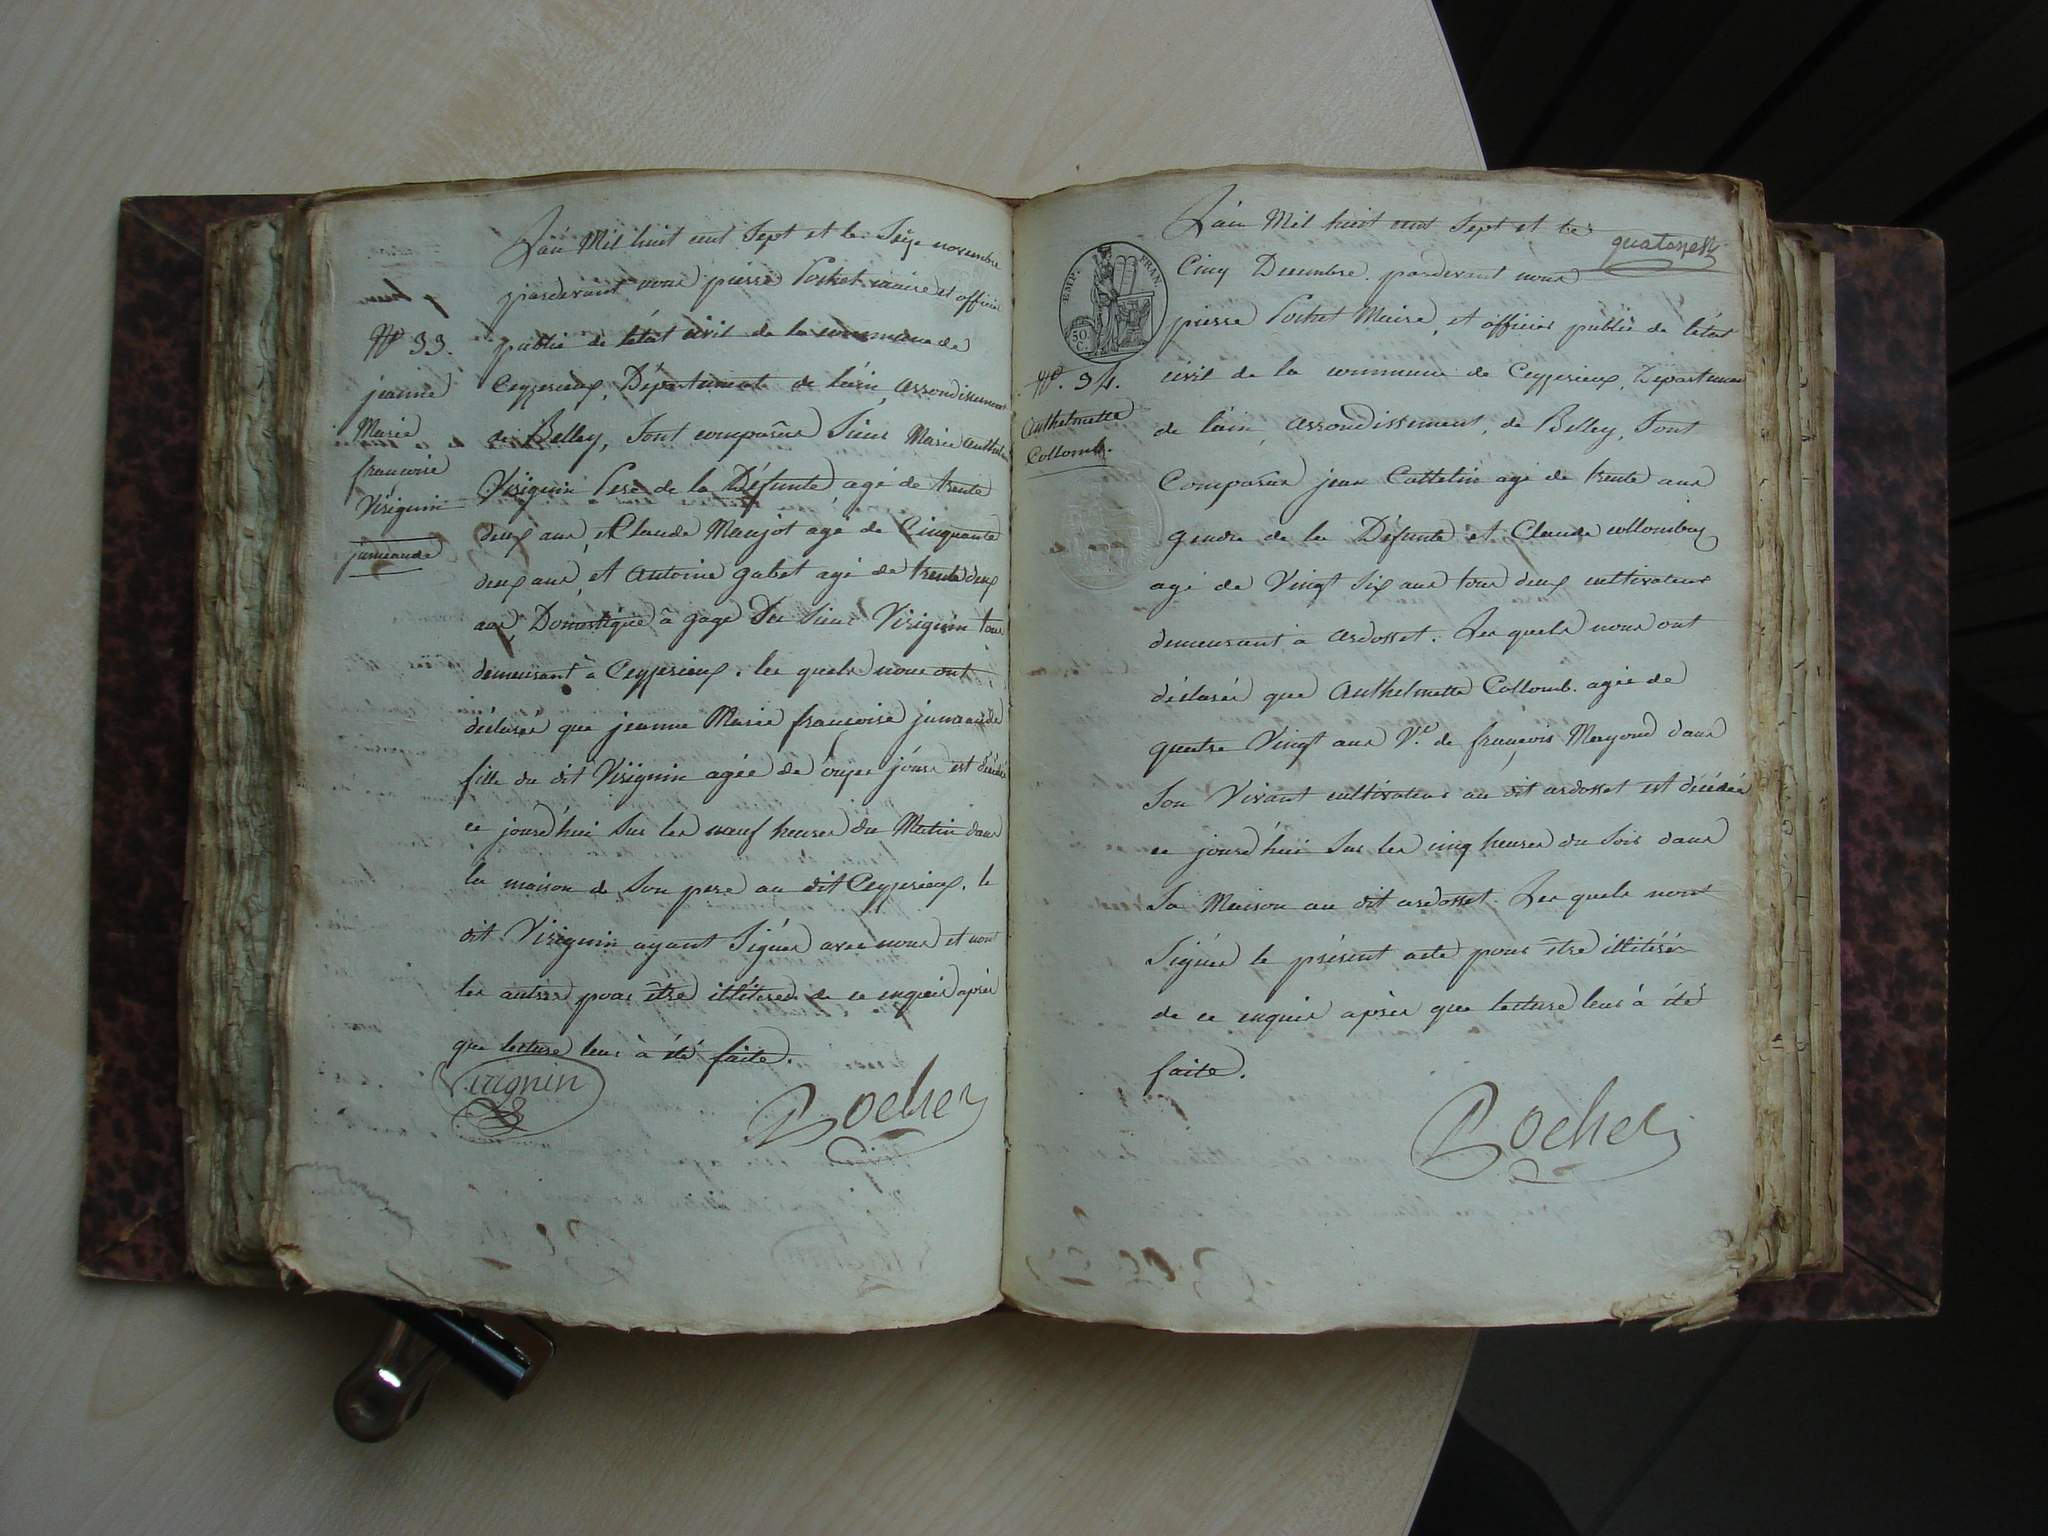 L'an Mil huit cent Sept et le Seize novembre
pardevant nous pierre Pochet maire et officier
N° 33. public de l'état civil de la commune de
jeanne Ceyzerieux, Département de l'ain, arrondissement
Marie de Belley, Sont comparus Sieur Marie Anthelme
françoise Virignin Pere de la Défunte agé de trente
Virignin deux ans, et Claude Maujot agé de Cinquante
jumeaude deux ans, et Antoine gabet agé de trente deux
ans, Domestique à gage Du Sieur Virignin tous
demeurant à Ceyzerieux. les quels nous ont
déclaré que jeanne Marie françoise jumeaude
fille du dit Virignin agée de onze jours est décédée
ce jourd'hui Sur les neuf heures du Matin dans
la maison de Son pere au dit Ceyzerieux. le
dit Virignin ayant Signer avec nous et non
les autres pour être illiteres de ce enquis après
que lecture leur à été faite.
Viragnin
Bochet
quatorze
L'ain Mil huit cent Sept et le
Cinq Decembre pardevant nous
EMP. FRAN.
50 C.
pierre Pochet Maire, et officier public de l'état
N°. 34. civil de la commune de Ceyzerieux, Departement
Anthelmette de l'ain, arrondissement, de Belley, Sont
Collomb. Comparus jean Cattelin agé de trente ans
gendre de la Défunte et Claude collomban
agé de Vingt Six ans tous deux cultivateurs
demeurant à ardosset. Les quels nous ont
déclarer que Anthelmette Collomb. agée de
quatre Vingt ans V.e de françois Mayoud dans
Son Vivant cultivateur au dit ardosset est décédée
ce jourd'hui Sur les cinq heures du Soir dans
Sa Maison au dit ardosset. Les quels nont
Signer le présent acte pour être illitérés
de ce enquis après que lecture leur à été
faite.
Bochet